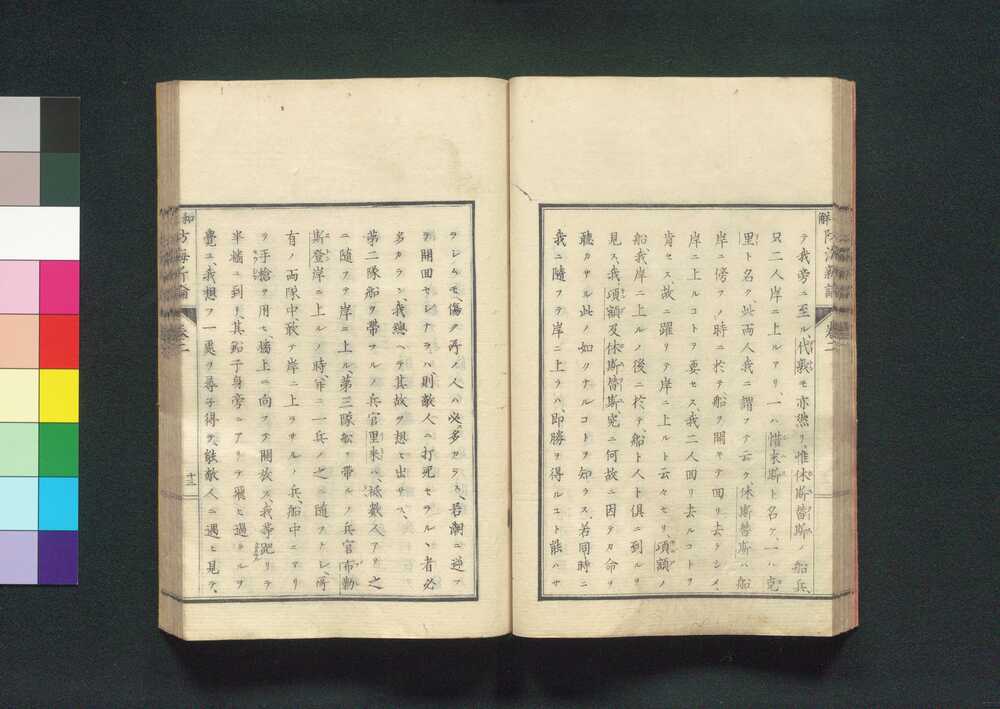 テ我旁ニ至ル、代毅モ亦然リ、惟休斯蟠斯ノ船兵、
只二人岸ニ上ルアリ、一ハ惜来斯ト名ケ、一ハ克
里ト名ク、此両人我ニ謂フテ云ク、休斯蟠斯ハ船
岸ニ傍フノ時ニ於テ船ヲ開キテ回リ去ラシメ、
岸ニ上ルコトヲ要セス、我二人回リ去ルコトヲ
肯セス、故ニ躍リテ岸ニ上ルト云々セリ、項額ノ
船我岸ニ上ルノ後ニ於テ、船ト人ト倶ニ到ルヲ
見ス、我、項額及休斯蟠斯、究ニ何故ニ因テカ命ヲ
聴カサル、此ノ如クナルコトヲ知ラス、若同時ニ
我ニ隨フテ岸ニ上ラハ、即勝ヲ得ルコト能ハサ
ラレムモ、傷ク所ノ人ハ必多カラス、若潮ニ逆フ
テ開回セシナラハ、則敵人ニ打死セラルヽ者必
多カラン、我總ヘテ其故ヲ想ヒ出サス、
第二隊船ヲ帶フルノ兵官里来ハ、祗數人アリ、之
ニ隨フテ岸ニ上ル、第三隊船ヲ帶ルノ兵官布勒
斯登岸ニ上ルノ時、牢ニ一兵ノ之ニ隨フナシ、所
有ノ両隊中、敢テ岸ニ上ラサルノ兵、船中ニアリ
テ手槍ヲ用ヒ、墻上ニ向フテ開放ス、我等跑リテ
半墻ニ到リ、其鉛子身旁ニアリテ飛ヒ過ルヲ
覺ユ、我想フ一處ヲ尋子得テ、能敵人ニ遇ヒ見テ、
巻二
十三